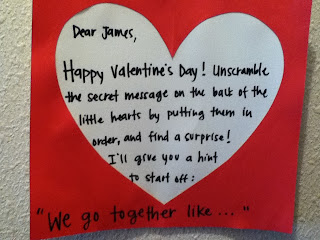 Dear James,
Happy Valentine's Day! Unscramble
the secret message on the back of the
little hearts by putting them in
order, and find a surprise!
I'll give you a hint
to start off:
"We go together like..."